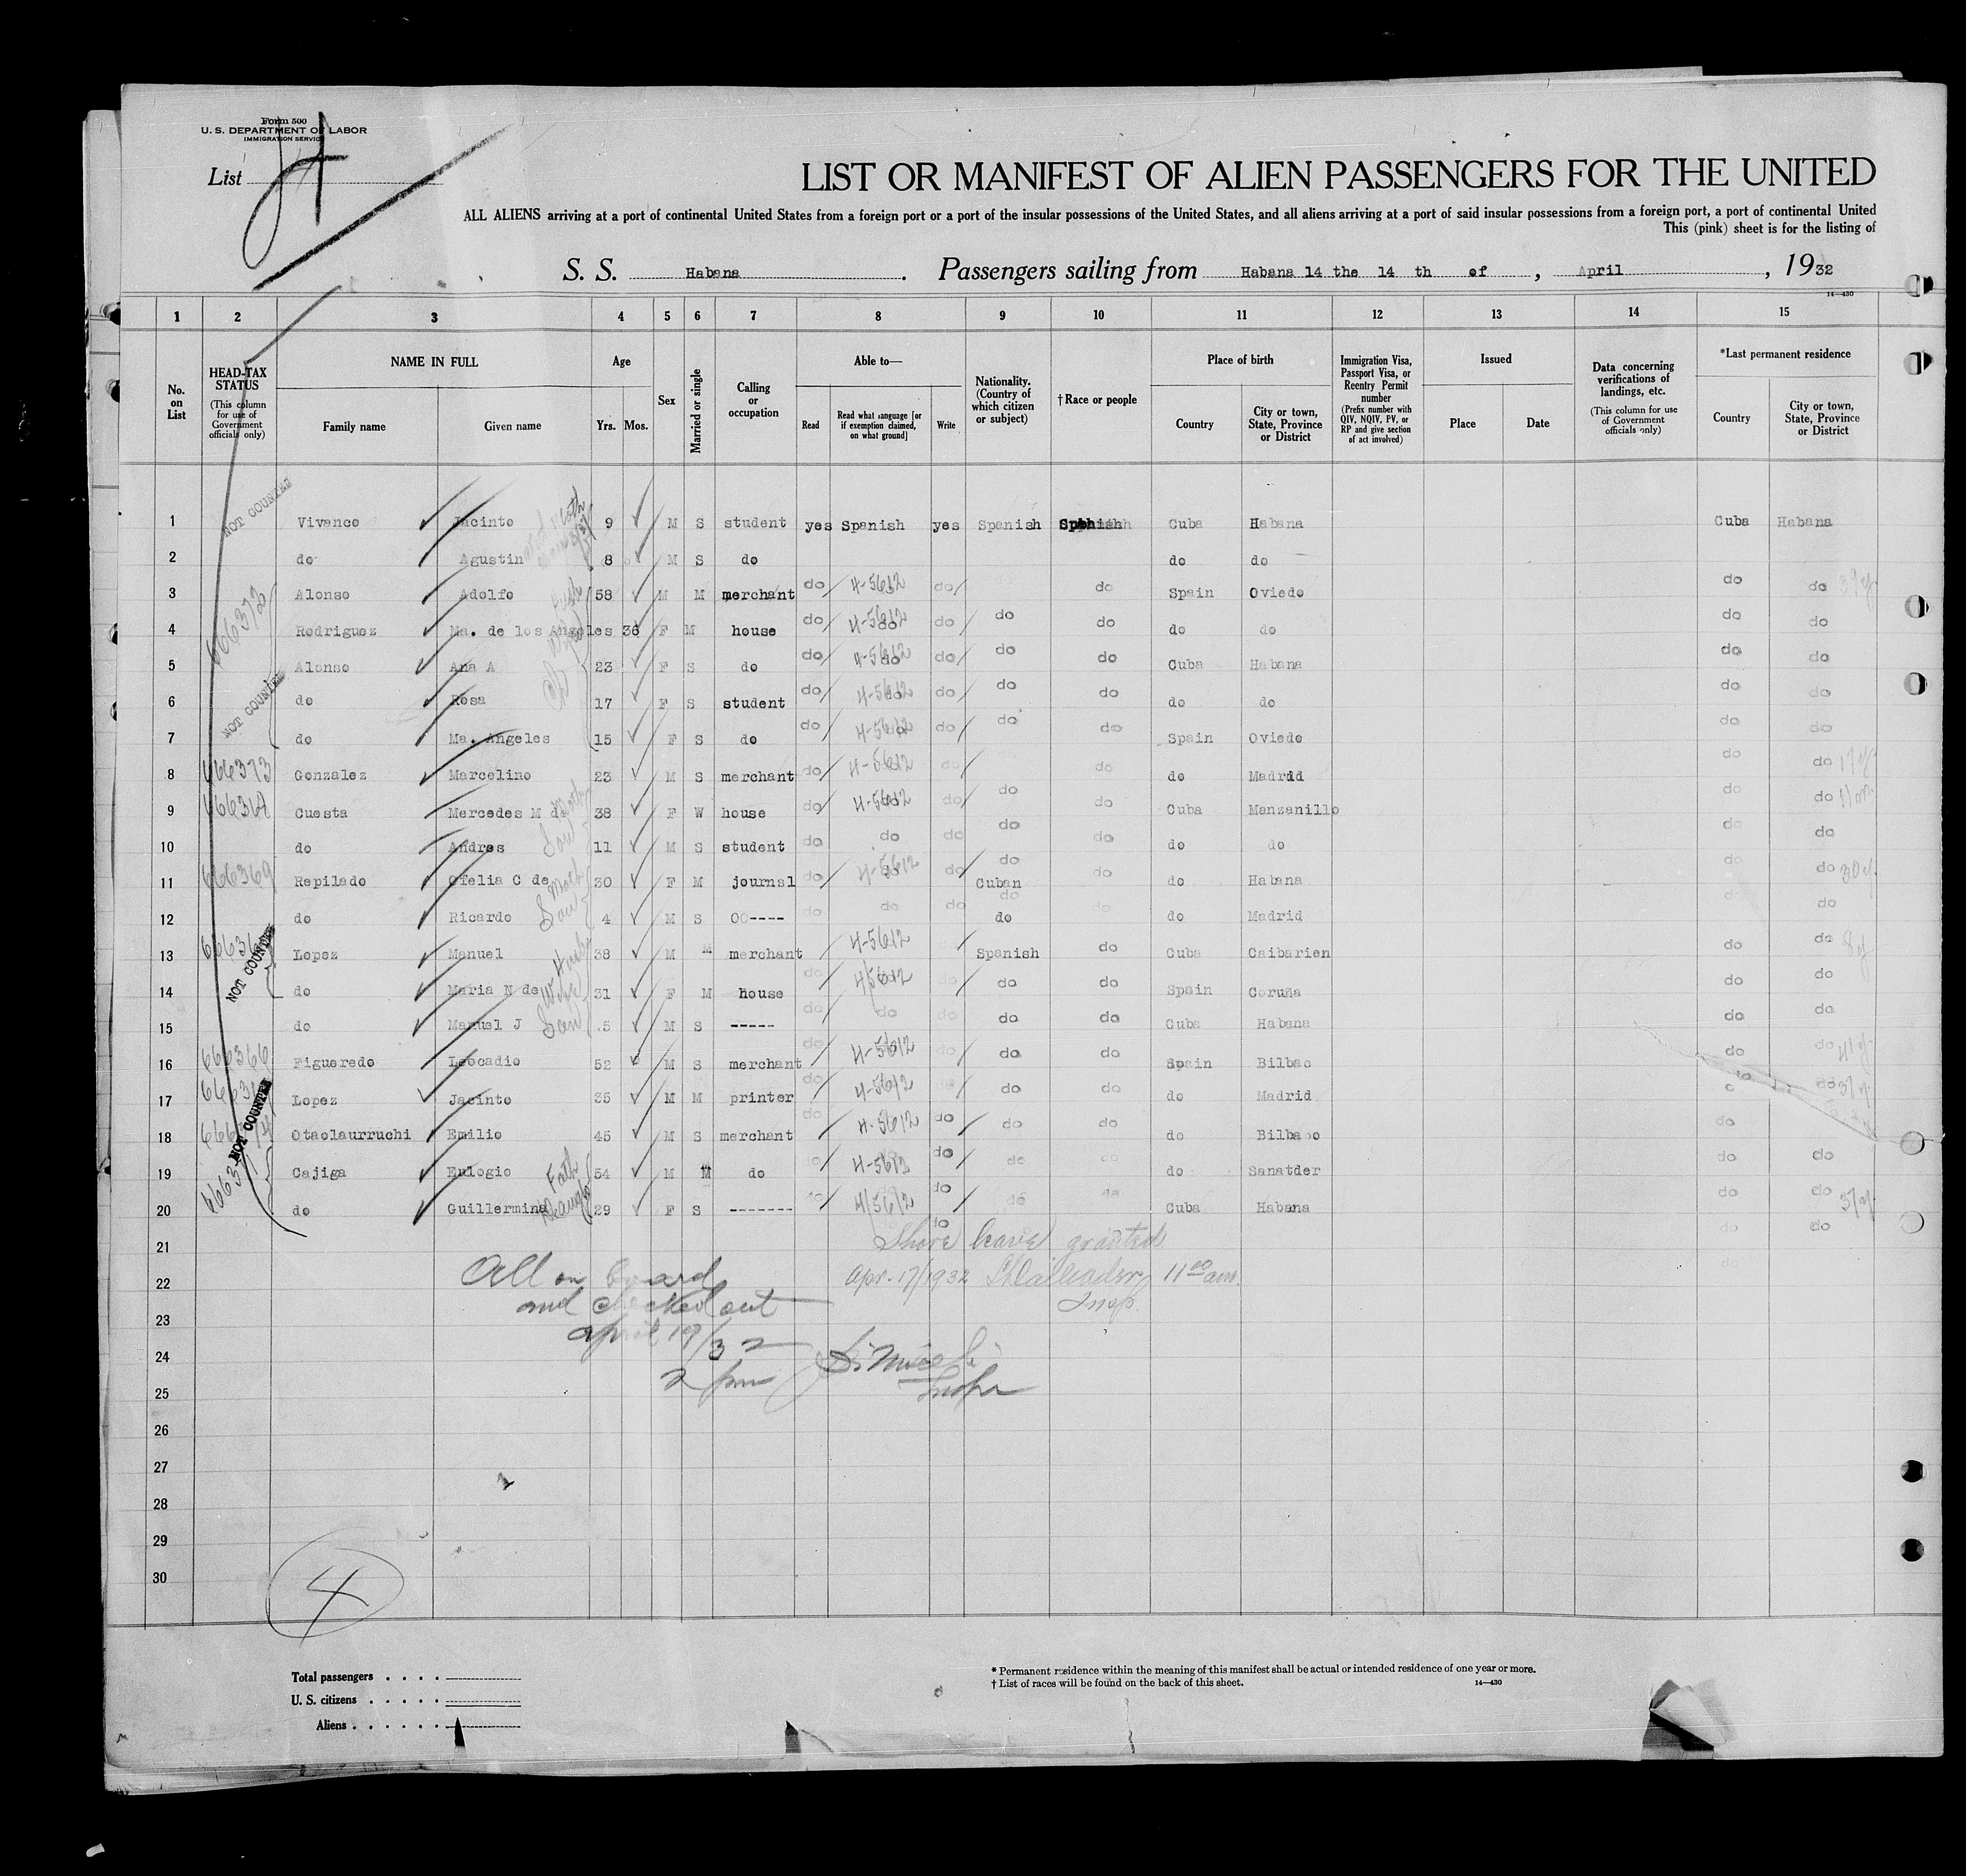 Form 500
U. S. DEPARTMENT OF LABOR
IMMIGRATION SERVICE
List 4
LIST OR MANIFEST OF ALIEN PASSENGERS FOR THE UNITED
ALL ALIENS arriving at a port of continental United States from a foreign port or a port of the insular possessions of the United States, and all aliens arriving at a port of said insular possessions from a foreign port, a port of continental United
This (pink) sheet is for the listing of
S. S. Habana. Passengers sailing from Habana 14 the 14 th of, April, 1932
14—430
1 2 3 4 5 6 7 8 9 10 11 12 13 14 15
No. on List
HEAD-TAX STATUS (This column for use of Government officials only)
NAME IN FULL Family name Given name
Age Yrs. Mos.
Sex
Married or single
Calling or occupation
Able to— Read Read what language [or if exemption claimed, on what ground] Write
Nationality. (Country of which citizen or subject)
† Race or people
Place of birth Country City or town, State, Province or District
Immigration Visa, Passport Visa, or Reentry Permit number (Prefix number with QIV, NQIV, PV, or RP and give section of act involved)
Issued Place Date
Data concerning verifications of landings, etc. (This column for use of Government officials only)
*Last permanent residence Country City or town, State, Province or District
1 NOT COUNTED Vivanco Jacinto 9 M S student yes Spanish yes Spanish Spanish Cuba Habana Cuba Habana
2 do Agustin 8 M S do do do
3 Alonso Adolfo 58 M M merchant do 4-5612 do do Spain Oviedo do do 39y
4 666372 Rodriguez Ma. de los Angeles 36 F M house do 4-5612 do do do do do do do
5 Alonso Ana A 23 F S do do 4-5612 do do do Cuba Habana do do
6 NOT COUNTED do Rosa 17 F S student do 4-5612 do do do do do do do
7 do Ma. Angeles 15 F S do do 4-5612 do do do Spain Oviedo do do
8 666373 Gonzalez Marcelino 23 M S merchant do 4-5612 do do do Madrid do do 17y
9 666368 Cuesta Mercedes M de 38 F W house do 4-5612 do do do Cuba Manzanillo do do 11m.
10 do Andres 11 M S student do do do do do do do do do
11 666369 Repilado Ofelia C de 30 F M journsl do 4-5612 do do Cuban do do Habana do do 30y
12 do Ricardo 4 M S OO---- do do do do do do do Madrid do
13 NOT COUNTED Lopez Manuel 38 M M merchant 4-5612 Spanish do Cuba Caibarien do do 8y
14 do Maria N de Wife 31 F M house do 4/5612 do do do Spain Coruña do do
15 do Manuel J Son 5 M S ----- do do do do do Cuba Habana do do
16 666366 Figueredo Leocadio 52 M S merchant do 4-5612 do do do Spain Bilbao do do 41y
17 Lopez Jacinto 35 M M printer do 4-5612 do do do Madrid do 37y
18 NOT COUNTED Otaolaurruchi Emilio 45 M S merchant do 4-5612 do do do do Bilbao do
19 Cajiga Eulogio Fath 54 M M do 4-5612 do do do do Sanatder do do
20 do Guillermina Daugh 29 F S ------- do 4/5612 do do do Cuba Habana do do 37y
do do do
21 Shore leave granted
22 All on board Apr-17/1932 11 00 am.
and checked out Insp.
23 april 19/32
24 2 pm
25 Inspr
26
27
28
29
30
4
Total passengers . . . .
U. S. citizens . . . . .
Aliens . . . . . .
* Permanent residence within the meaning of this manifest shall be actual or intended residence of one year or more.
† List of races will be found on the back of this sheet.
14—430